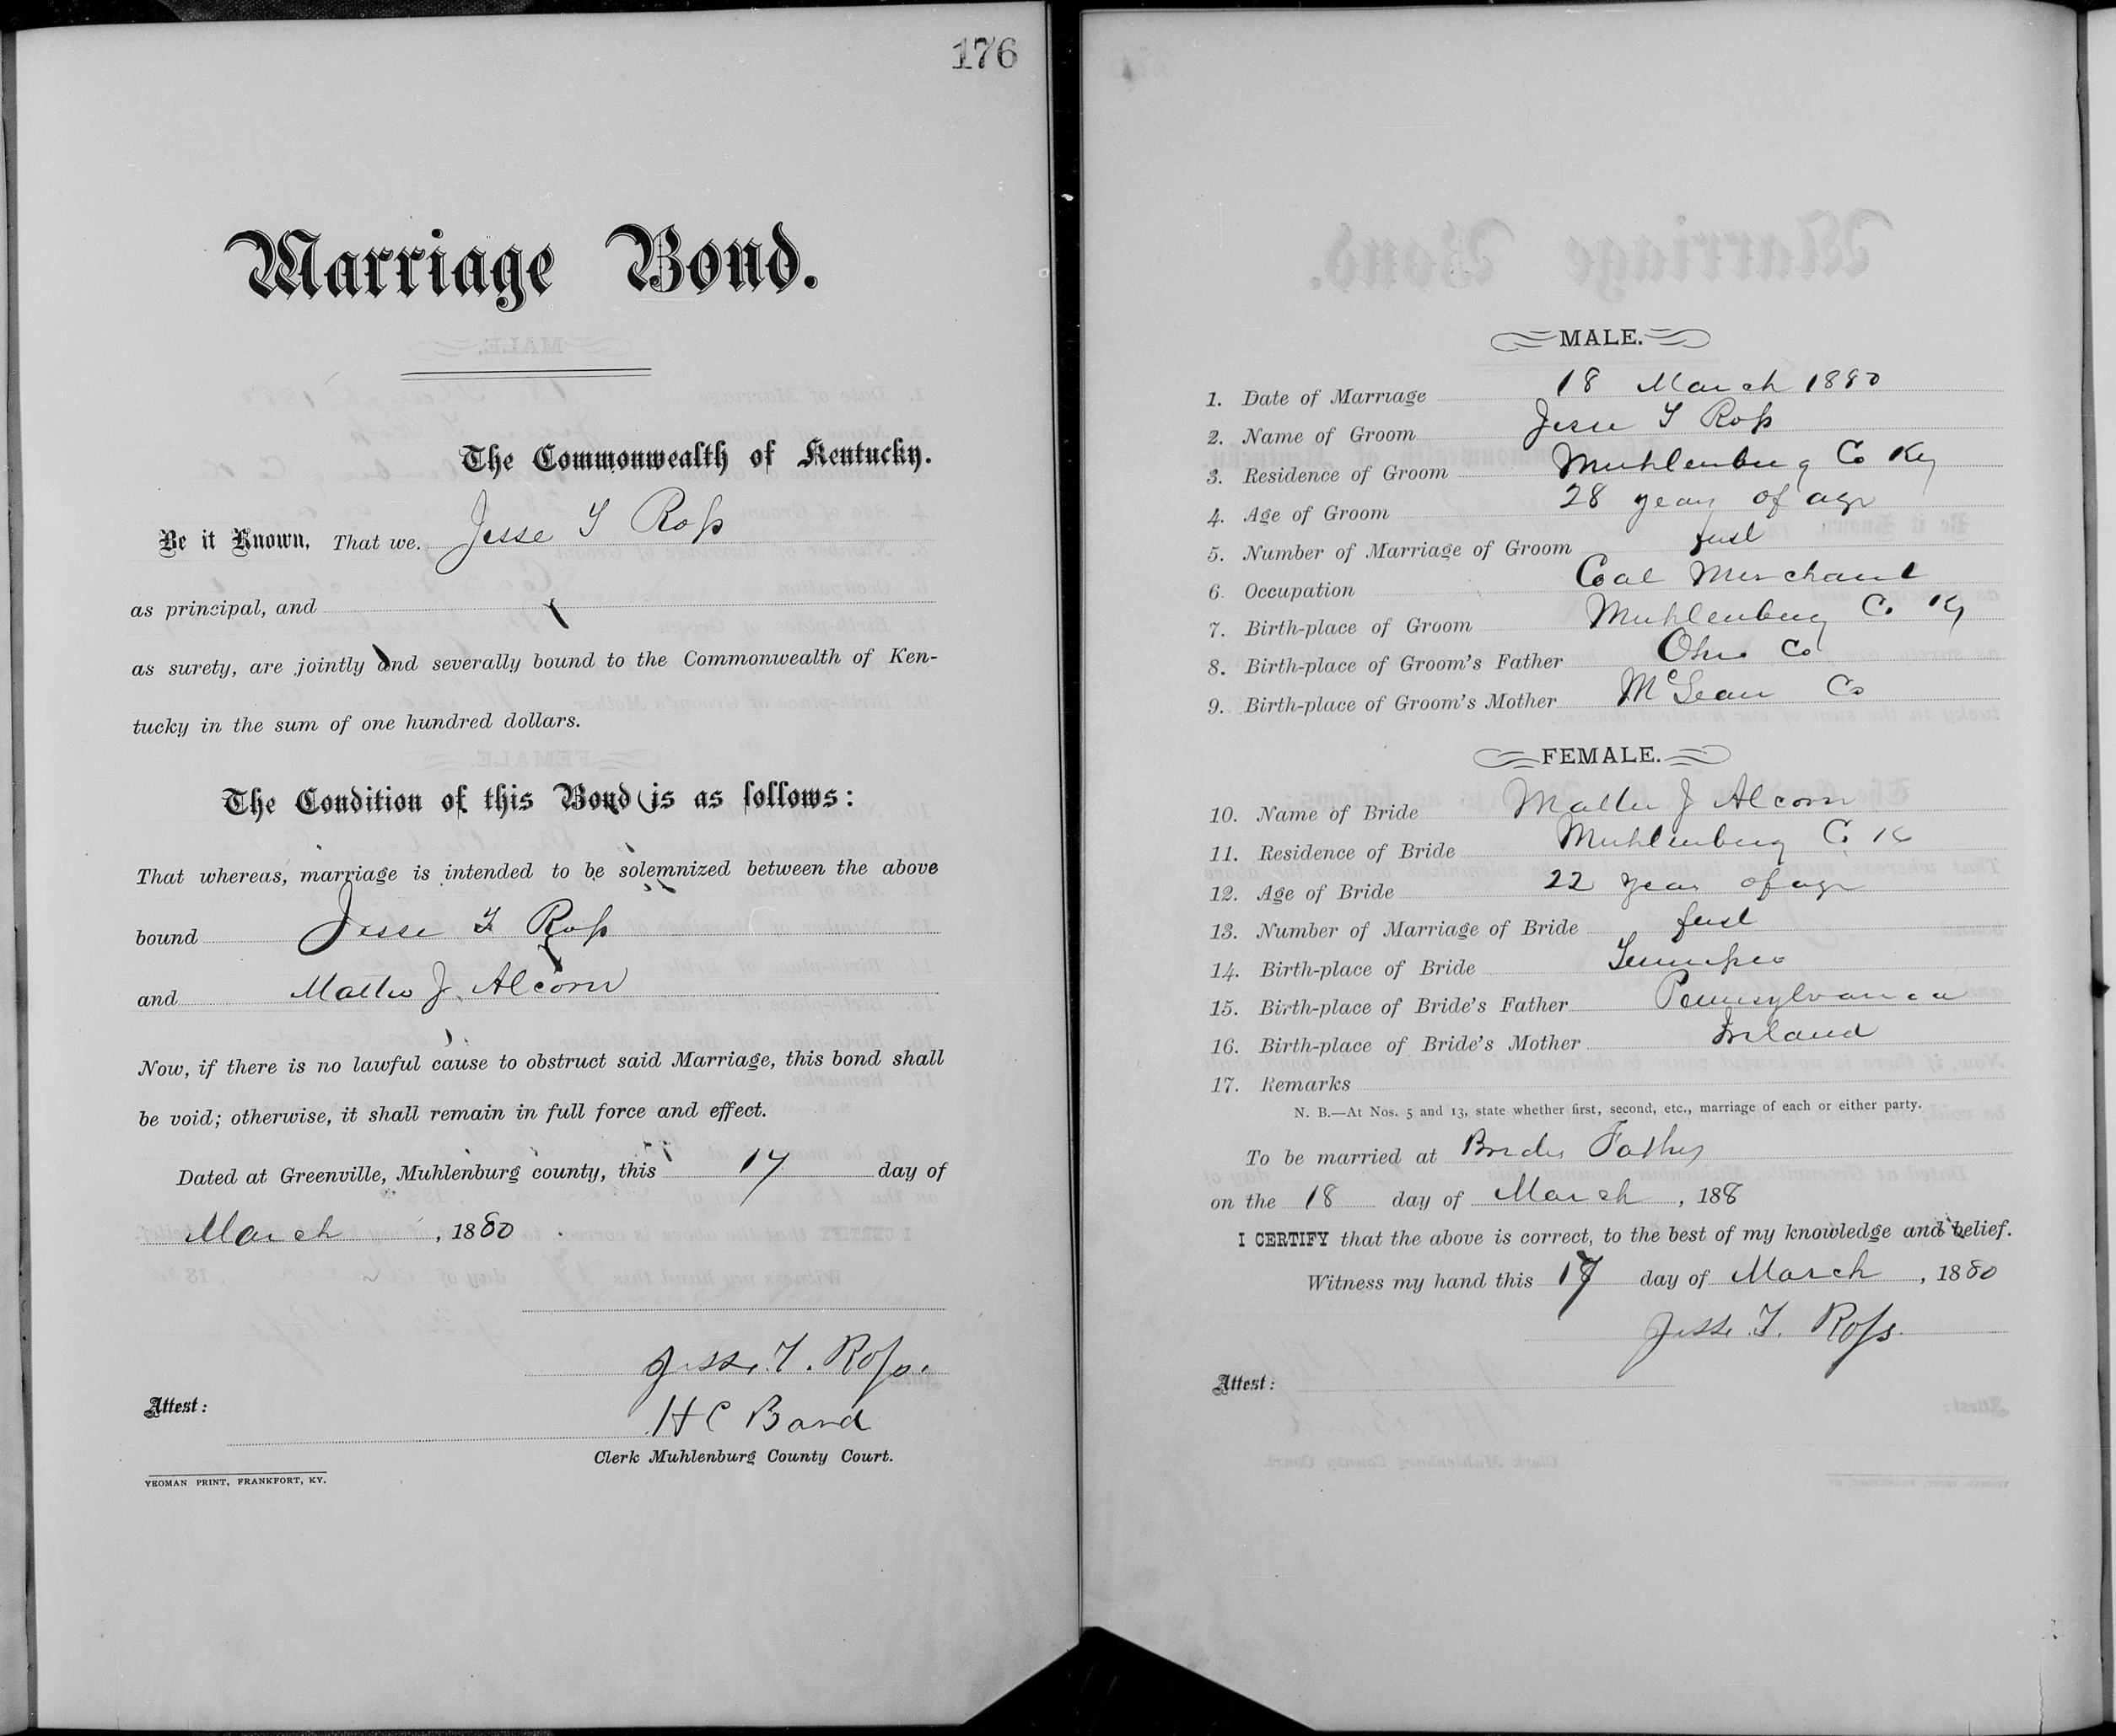 176
Marriage Bond.
The Commonwealth of Kentucky.
Be it Known, That we. Jesse T Ross
as principal, and
as surety, are jointly and severally bound to the Commonwealth of Ken-
tucky in the sum of one hundred dollars.
The Condition of this Bond is as follows:
That whereas, marriage is intended to be solemnized between the above
bound Jesse T Ross
and Mattie J. Alcorn
Now, if there is no lawful cause to obstruct said Marriage, this bond shall
be void; otherwise, it shall remain in full force and effect.
Dated at Greenville, Muhlenburg county, this 17 day of
March, 1880
Jesse. T. Ross.
Attest: HC Bard
Clerk Muhlenburg County Court.
YEOMAN PRINT, FRANKFORT, KY.
MALE.
1. Date of Marriage 18 March 1880
2. Name of Groom Jesse T Ross
3. Residence of Groom Muhlenburg Co Ky
4. Age of Groom 28 years of age
5. Number of Marriage of Groom first
6. Occupation Coal Merchant
7. Birth-place of Groom Muhlenburg C. Ky
8. Birth-place of Groom's Father Ohio Co
9. Birth-place of Groom's Mother McLean Co
FEMALE.
10. Name of Bride Mattie J Alcorn
11. Residence of Bride Muhlenburg C. K
12. Age of Bride 22 years of age
13. Number of Marriage of Bride first
14. Birth-place of Bride Tennessee
15. Birth-place of Bride's Father Pennsylvania
16. Birth-place of Bride's Mother Ireland
17. Remarks
N. B.—At Nos. 5 and 13, state whether first, second, etc., marriage of each or either party.
To be married at Brides Fathers
on the 18 day of March, 188
I CERTIFY that the above is correct, to the best of my knowledge and belief.
Witness my hand this 17 day of March, 1880
Jesse. T. Ross.
Attest: